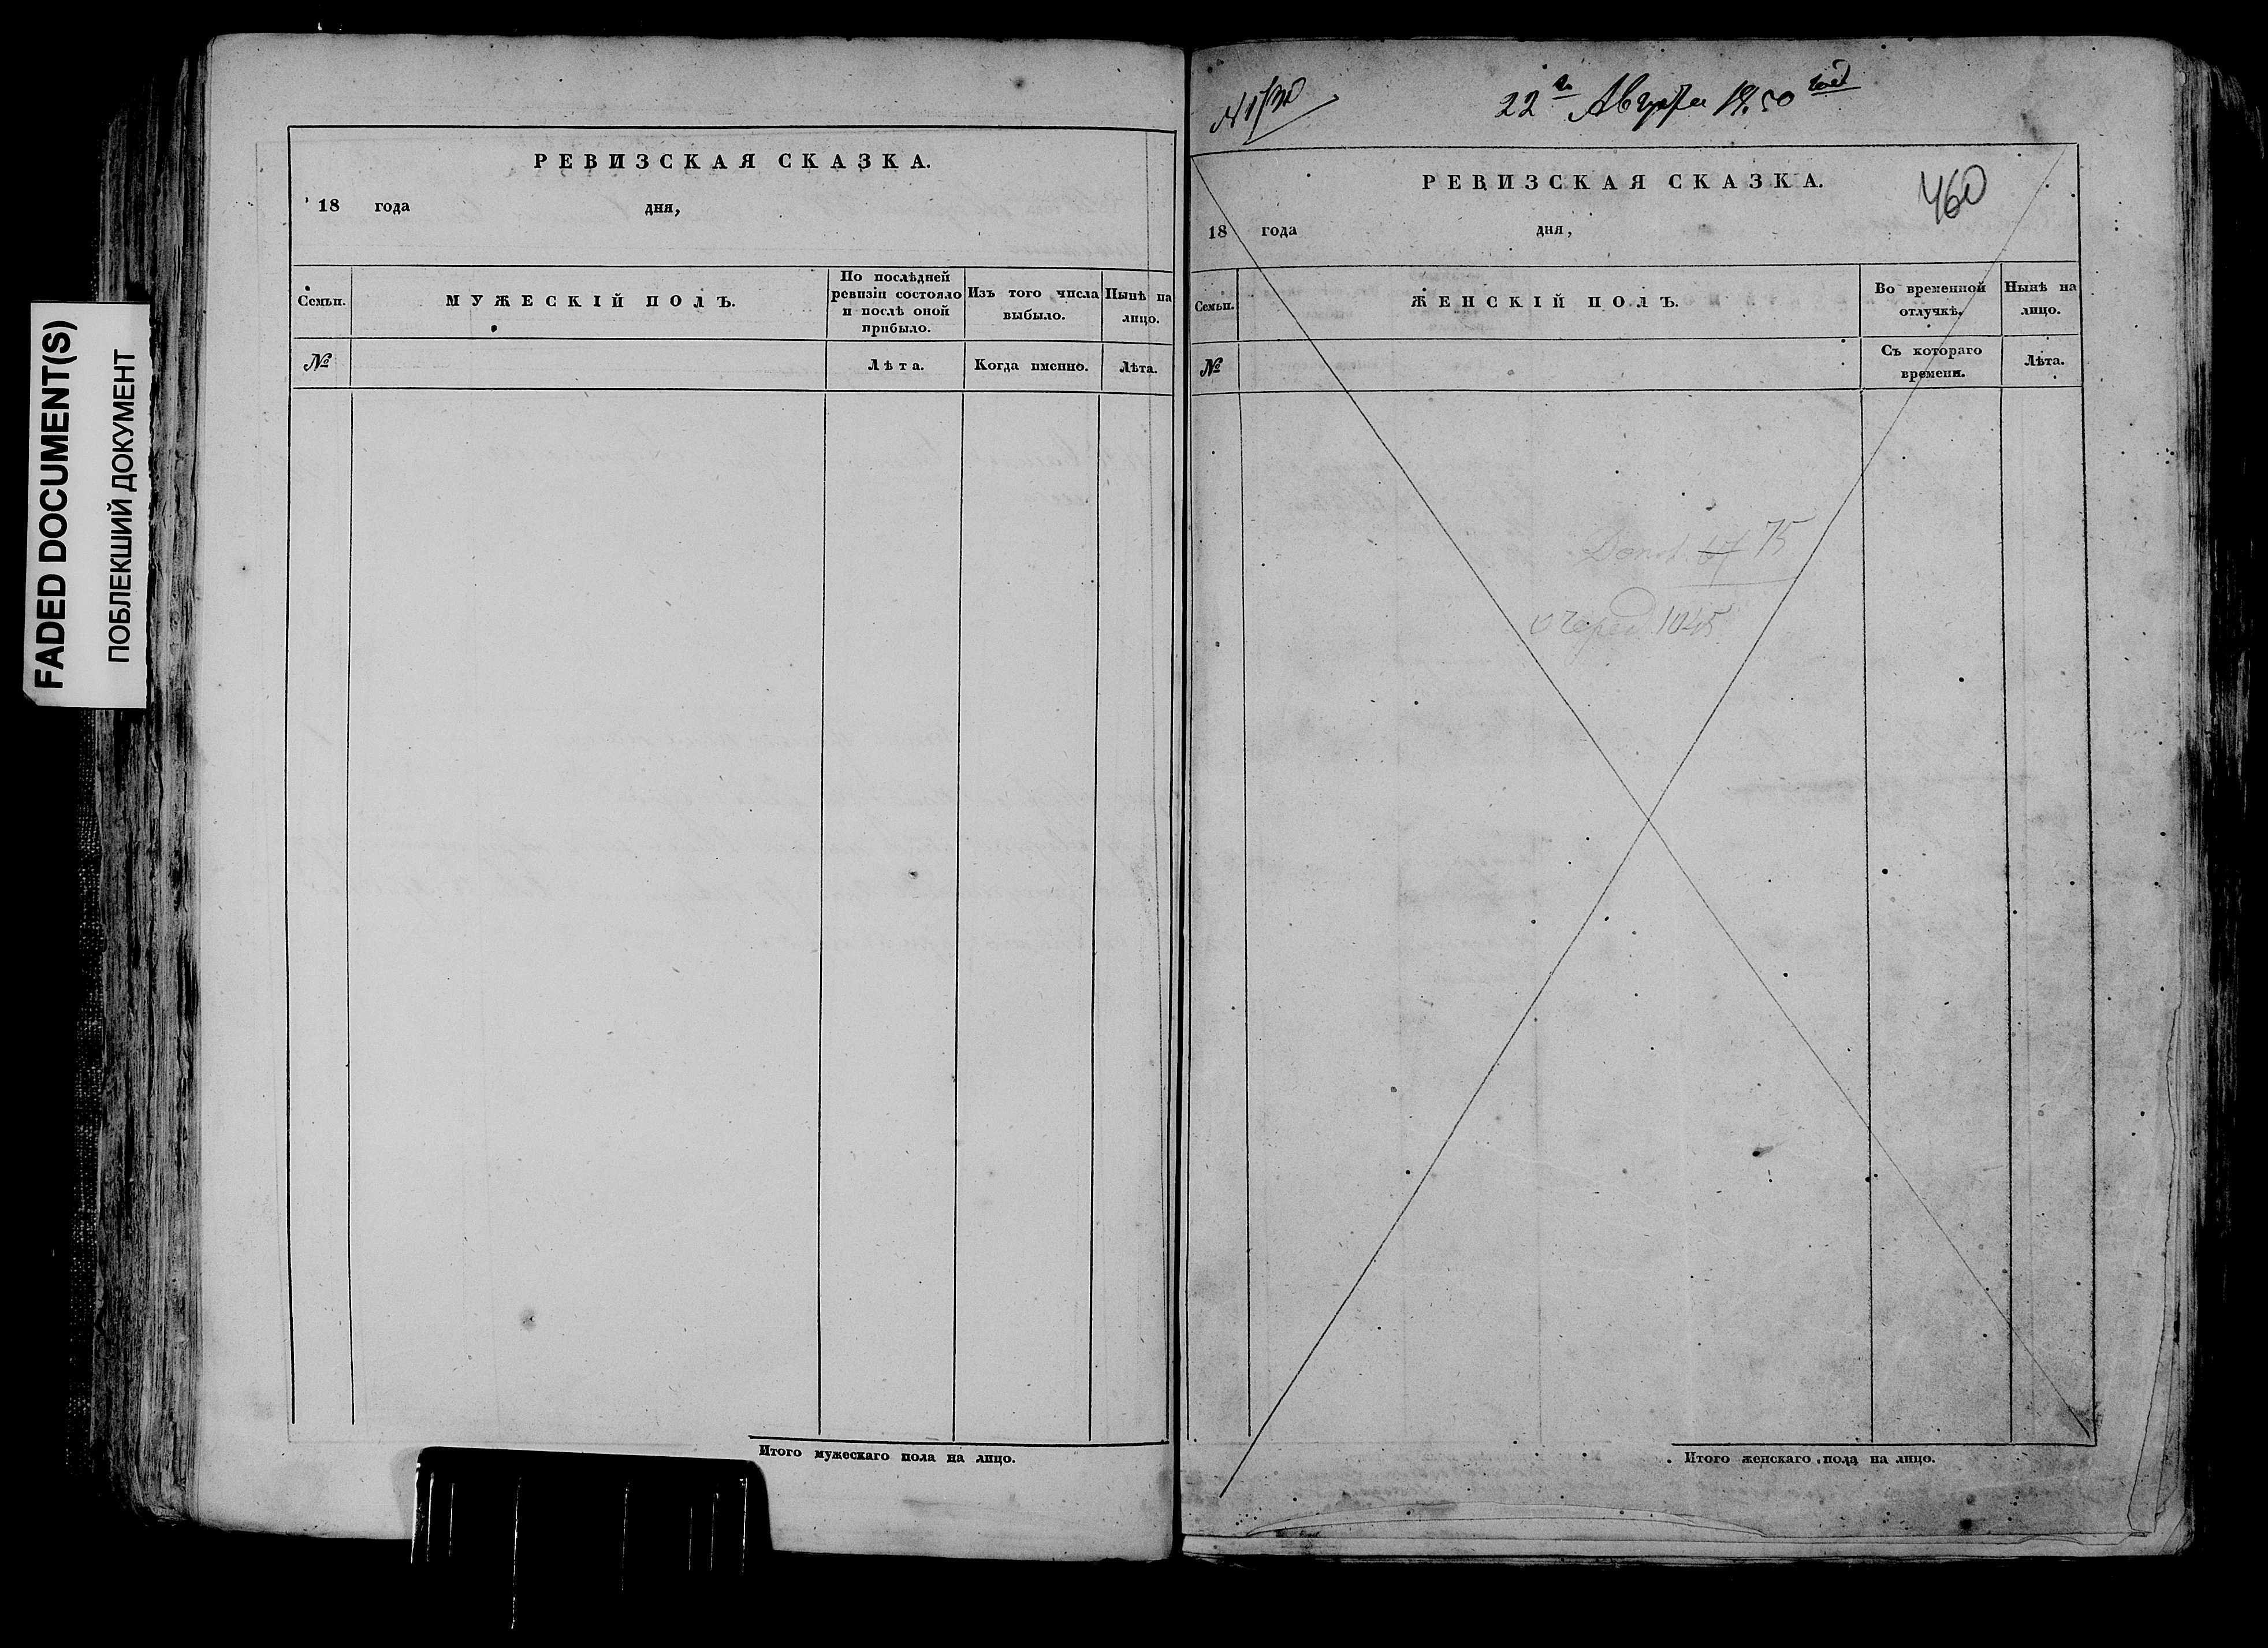 FADED DOCUMENT(S)
ПОБЛЕКШИЙ ДОКУМЕНТ
РЕВИЗСКАЯ СКАЗКА.
18 года дня,
Семьи. МУЖЕСКІЙ ПОЛЪ. По послѣдней ревизіи состояло и послѣ оной прибыло. Изъ того числа выбыло. Нынѣ на лицо.
№ Лѣта. Когда именно. Лѣта.
Итого мужескаго пола на лицо.
22 Августа 1850 года
460
РЕВИЗСКАЯ СКАЗКА.
18 года дня,
Семьи. ЖЕНСКІЙ ПОЛЪ. Во временной отлучкѣ. Нынѣ на лицо.
№ Съ котораго времени. Лѣта.
75
1045
Итого женскаго пола на лицо.